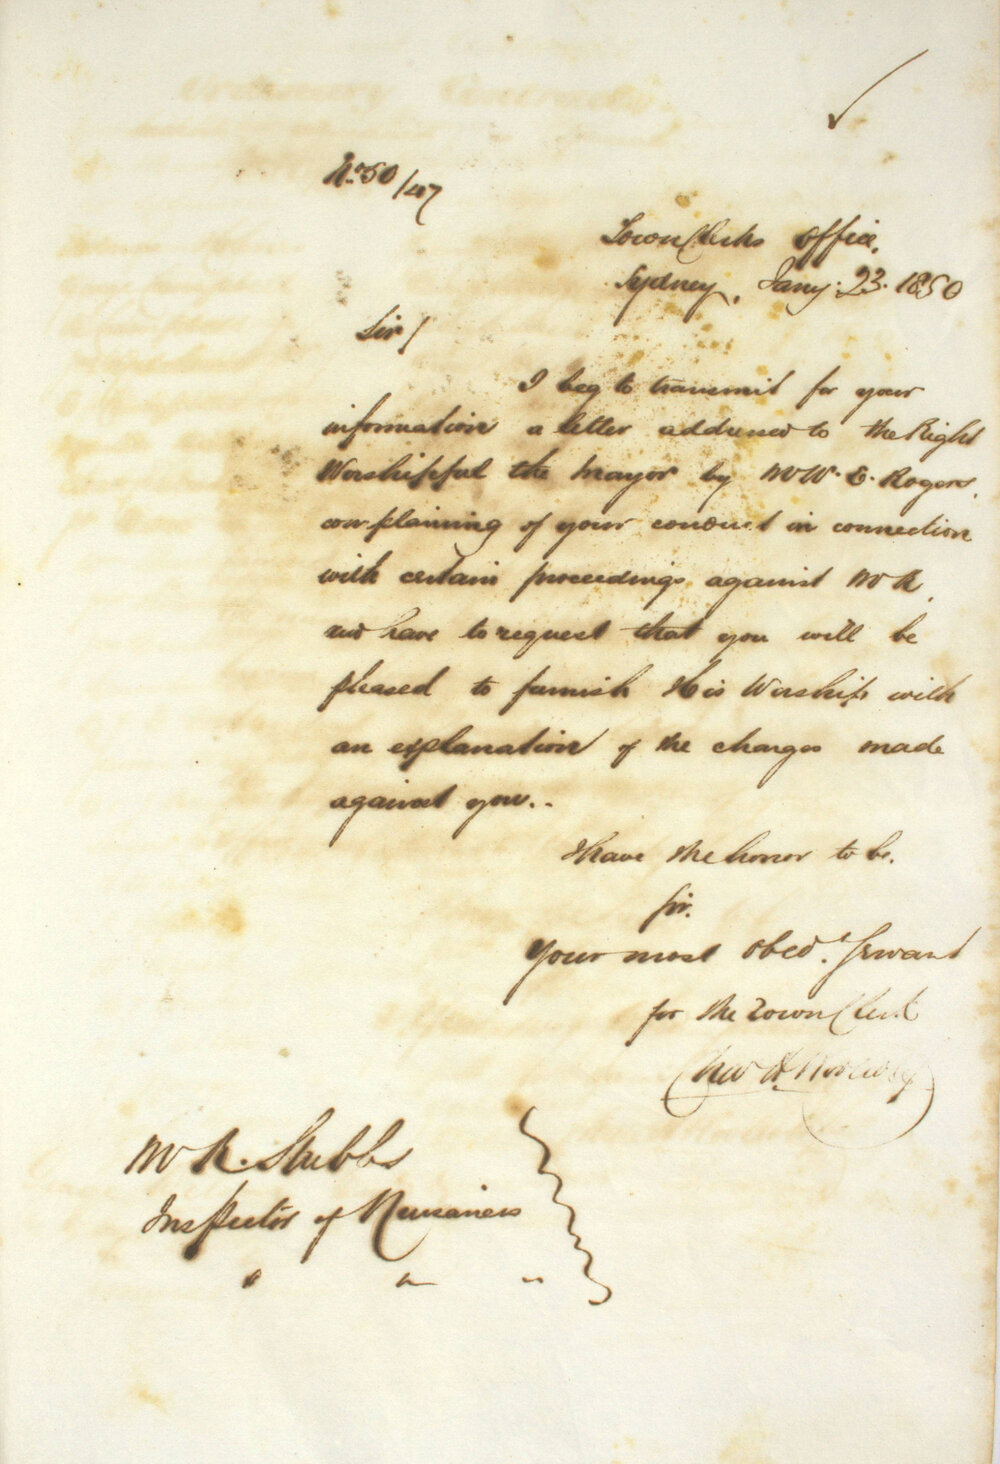 No. 50/47
Town Clerks Office,
Sydney, Jany. 23. 1850
Sir!
I beg to transmit for your
information a letter addressed to the Right
Worshipful the Mayor by Mr W. E. Rogers,
complaining of your conduct in connection
with certain proceedings against Mr R,
and have to request that you will be
pleased to furnish His Worship with
an explanation of the charges made
against you..
I have the honor to be,
Sir.
Your most Obed.t Servant
for the Town Clerk
Mr R. Stubbs
Inspector of Nuisances